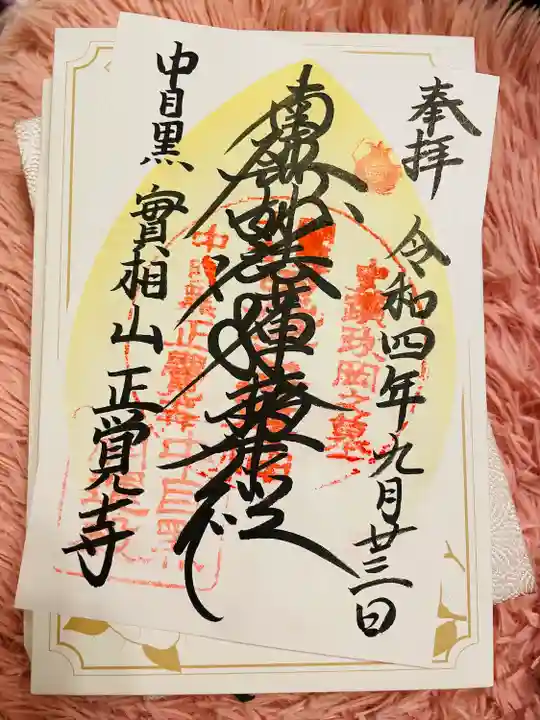 奉拝
令和四年九月廿三日
南無妙法蓮華経
史蹟政岡之墓
中目黒 實相山 正覚寺